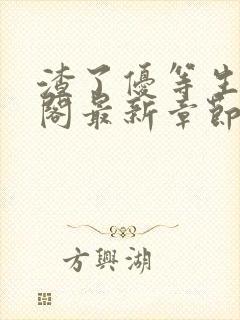 渣了優等生
閣最新章節
方興湖